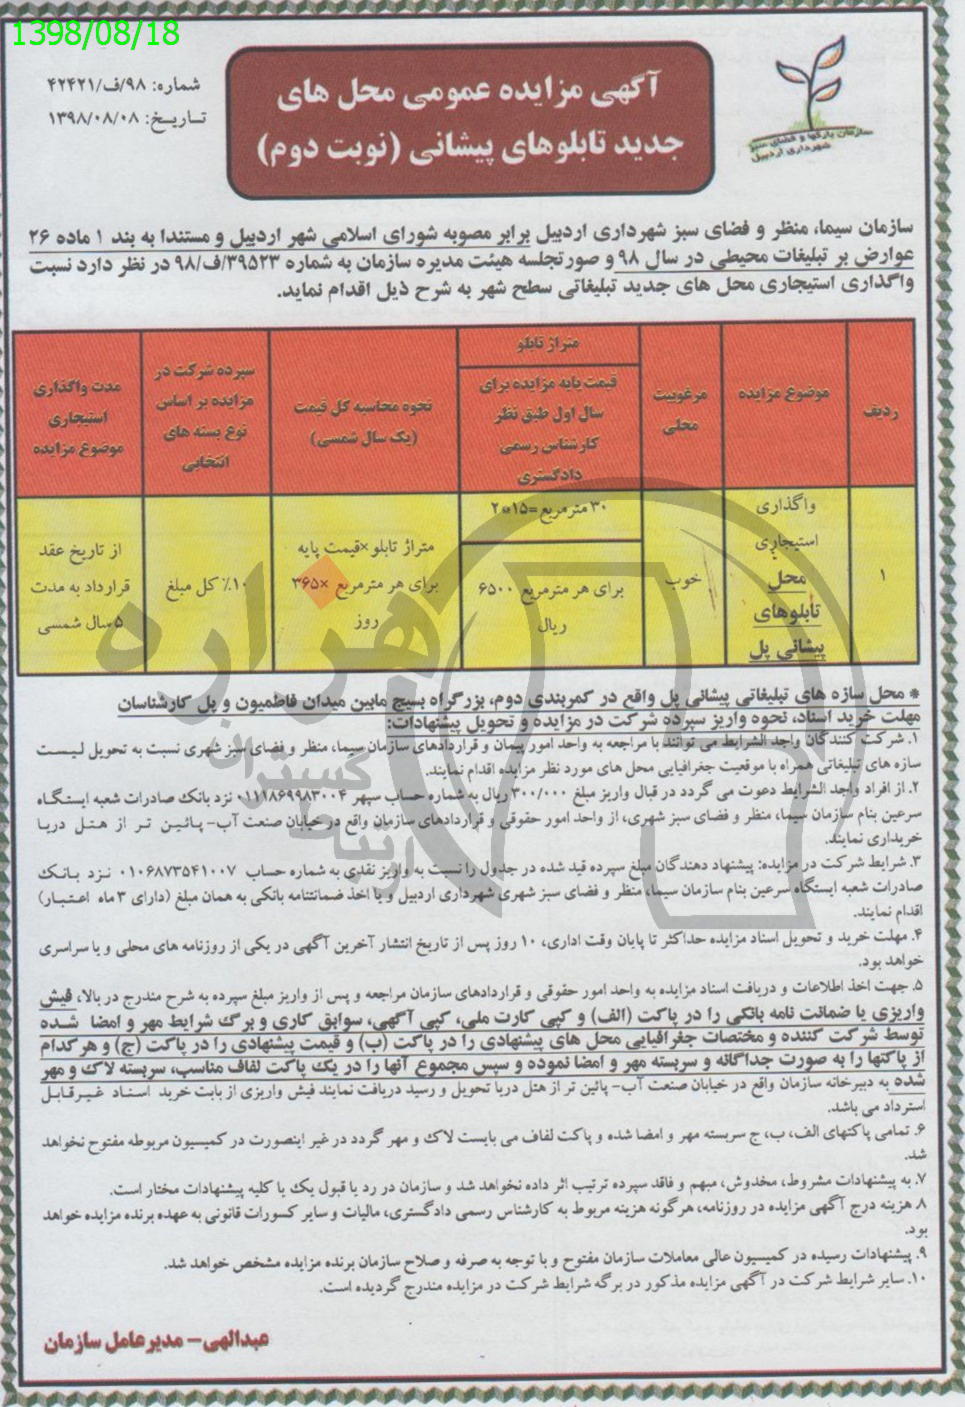 1398/08/18
سازمان پارکها و فضای سبز
شهرداری اردبیل
آگهی مزایده عمومی محل های
جدید تابلوهای پیشانی (نوبت دوم)
شماره: ۹۸/ف/۴۲۴۲۱
تاریخ: ۱۳۹۸/۰۸/۰۸
سازمان سیما، منظر و فضای سبز شهرداری اردبیل برابر مصوبه شورای اسلامی شهر اردبیل و مستندا به بند ۱ ماده ۲۶
عوارض بر تبلیغات محیطی در سال ۹۸ و صورتجلسه هیئت مدیره سازمان به شماره ۳۹۵۲۳/ف/۹۸ در نظر دارد نسبت
واگذاری استیجاری محل های جدید تبلیغاتی سطح شهر به شرح ذیل اقدام نماید.
ردیف
موضوع مزایده
مرغوبیت
محلی
متراژ تابلو
قیمت پایه مزایده برای
سال اول طبق نظر
کارشناس رسمی
دادگستری
نحوه محاسبه کل قیمت
(یک سال شمسی)
سپرده شرکت در
مزایده بر اساس
نوع بسته های
انتخابی
مدت واگذاری
استیجاری
موضوع مزایده
۱
واگذاری
استیجاری
محل
تابلوهای
پیشانی پل
خوب
۳۰ مترمربع=۱۵*۲
برای هر مترمربع ۶۵۰۰
ریال
متراژ تابلو×قیمت پایه
برای هر مترمربع ×۳۶۵
روز
۱۰٪ کل مبلغ
از تاریخ عقد
قرارداد به مدت
۵ سال شمسی
* محل سازه های تبلیغاتی پیشانی پل واقع در کمربندی دوم، بزرگراه بسیج مابین میدان فاطمیون و پل کارشناسان
مهلت خرید اسناد، نحوه واریز سپرده شرکت در مزایده و تحویل پیشنهادات:
۱. شرکت کنندگان واجد الشرایط می توانند با مراجعه به واحد امور پیمان و قراردادهای سازمان سیما، منظر و فضای سبز شهری نسبت به تحویل لیست
سازه های تبلیغاتی همراه با موقعیت جغرافیایی محل های مورد نظر مزایده اقدام نمایند.
۲. از افراد واجد الشرایط دعوت می گردد در قبال واریز مبلغ ۳۰۰/۰۰۰ ریال به شماره حساب سپهر ۰۱۱۱۸۶۹۹۸۳۰۰۴ نزد بانک صادرات شعبه ایستگاه
سرعین بنام سازمان سیما، منظر و فضای سبز شهری، از واحد امور حقوقی و قراردادهای سازمان واقع در خیابان صنعت آب- پائین تر از هتل دریا
خریداری نمایند.
۳. شرایط شرکت در مزایده: پیشنهاد دهندگان مبلغ سپرده قید شده در جدول را نسبت به واریز نقدی به شماره حساب ۰۱۰۶۸۷۳۵۴۱۰۰۷ نزد بانک
صادرات شعبه ایستگاه سرعین بنام سازمان سیما، منظر و فضای سبز شهری شهرداری اردبیل و یا اخذ ضمانتنامه بانکی به همان مبلغ (دارای ۳ ماه اعتبار)
اقدام نمایند.
۴. مهلت خرید و تحویل اسناد مزایده حداکثر تا پایان وقت اداری، ۱۰ روز پس از تاریخ انتشار آخرین آگهی در یکی از روزنامه های محلی و یا سراسری
خواهد بود.
۵. جهت اخذ اطلاعات و دریافت اسناد مزایده به واحد امور حقوقی و قراردادهای سازمان مراجعه و پس از واریز مبلغ سپرده به شرح مندرج در بالا، فیش
واریزی یا ضمانت نامه بانکی را در پاکت (الف) و کپی کارت ملی، کپی آگهی، سوابق کاری و برگ شرایط مهر و امضا شده
توسط شرکت کننده و مختصات جغرافیایی محل های پیشنهادی را در پاکت (ب) و قیمت پیشنهادی را در پاکت (ج) و هر کدام
از پاکتها را به صورت جداگانه و سربسته مهر و امضا نموده و سپس مجموع آنها را در یک پاکت لفاف مناسب، سربسته لاک و مهر
شده به دبیرخانه سازمان واقع در خیابان صنعت آب- پائین تر از هتل دریا تحویل و رسید دریافت نمایند فیش واریزی از بابت خرید اسناد غیرقابل
استرداد می باشد.
۶. تمامی پاکتهای الف، ب، ج سربسته مهر و امضا شده و پاکت لفاف می بایست لاک و مهر گردد در غیر اینصورت در کمیسیون مربوطه مفتوح نخواهد
شد.
۷. به پیشنهادات مشروط، مخدوش، مبهم و فاقد سپرده ترتیب اثر داده نخواهد شد و سازمان در رد یا قبول یک یا کلیه پیشنهادات مختار است.
۸. هزینه درج آگهی مزایده در روزنامه، هرگونه هزینه مربوط به کارشناس رسمی دادگستری، مالیات و سایر کسورات قانونی به عهده برنده مزایده خواهد
بود.
۹. پیشنهادات رسیده در کمیسیون عالی معاملات سازمان مفتوح و با توجه به صرفه و صلاح سازمان برنده مزایده مشخص خواهد شد.
۱۰. سایر شرایط شرکت در آگهی مزایده مذکور در برگه شرایط شرکت در مزایده مندرج گردیده است.
عبدالهی- مدیرعامل سازمان
هزاره